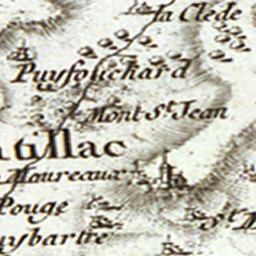 la Clede
Puyfouchard
Mont St. Jean
tillac
Moureaux
Rouge
St.
uybartre